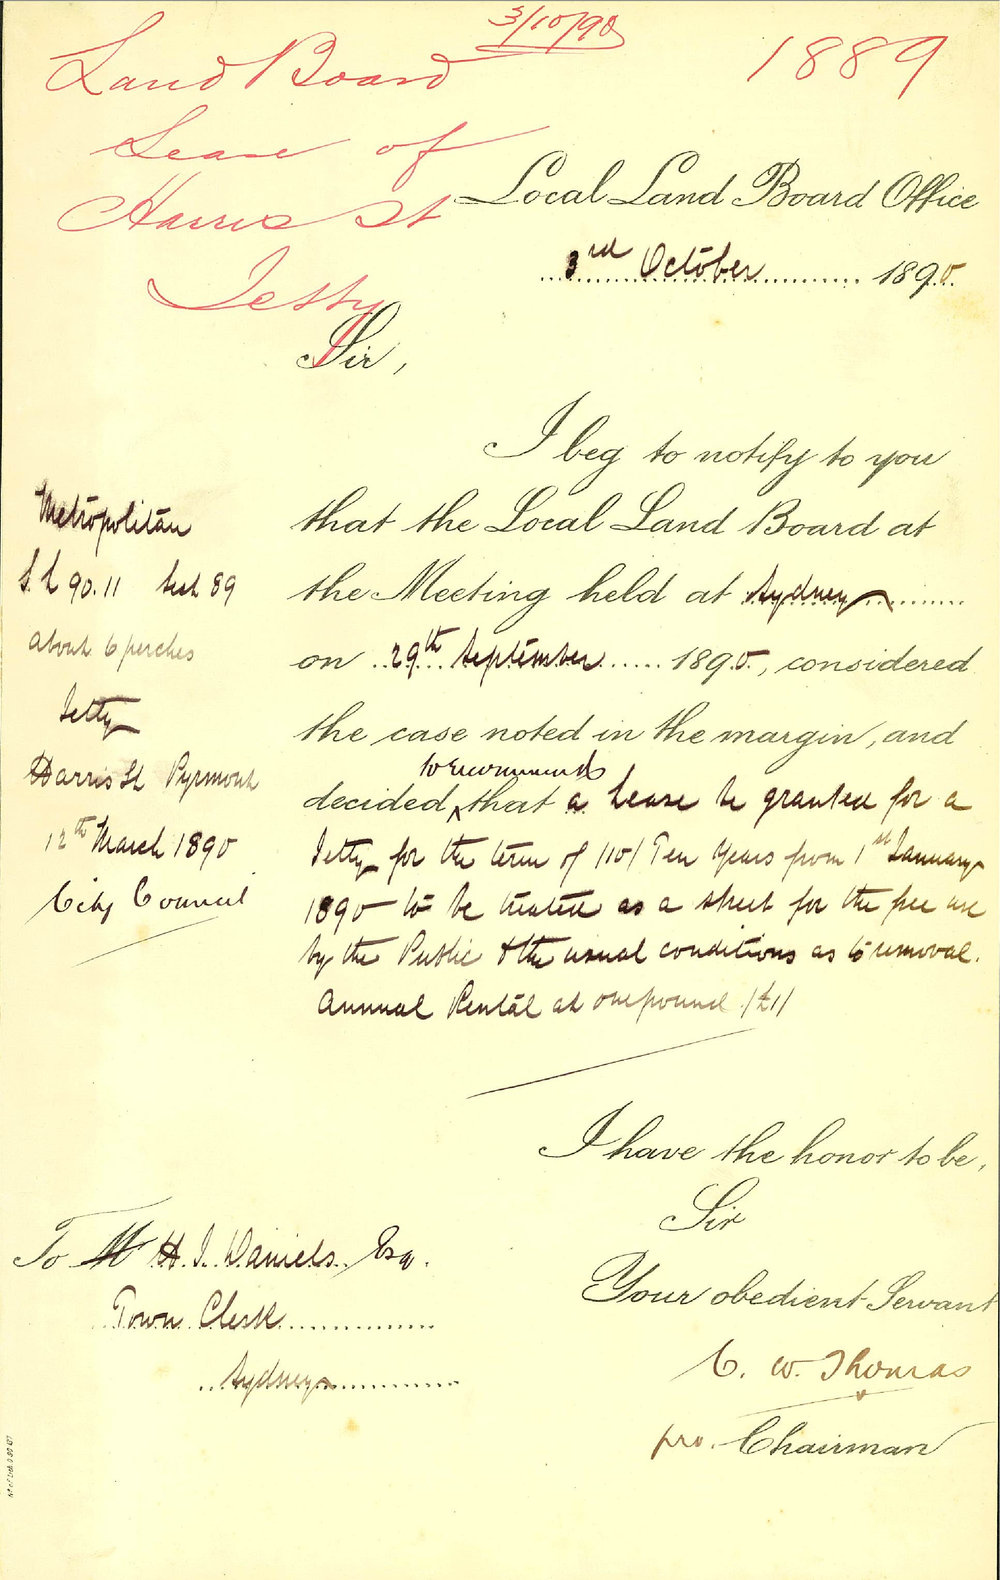 3/10/90
Land Board
1889
Lease of
Harris St
Jetty
Local Land Board Office
3rd October 1890.
Sir,
I beg to notify to you
that the Local Land Board at
the Meeting held at Sydney
on 29th September 1890, considered
the case noted in the margin, and
to recommend
decided, that a Lease be granted for a
Jetty for the term of /10/ Ten Years from 1st January
1890 to be treated as a street for the free use
by the Public & the usual conditions as to removal.
Annual Rental at one pound /£1/
Metropolitan
S.L 90.11 Sect 89
about 6 perches
Jetty
Harris St Pyrmont
12th March 1890
City Council
I have the honor to be,
Sir
Your obedient Servant
C. W. Thomas
pro. Chairman
To Mr H. J. Daniels. Esq.
Town Clerk
Sydney